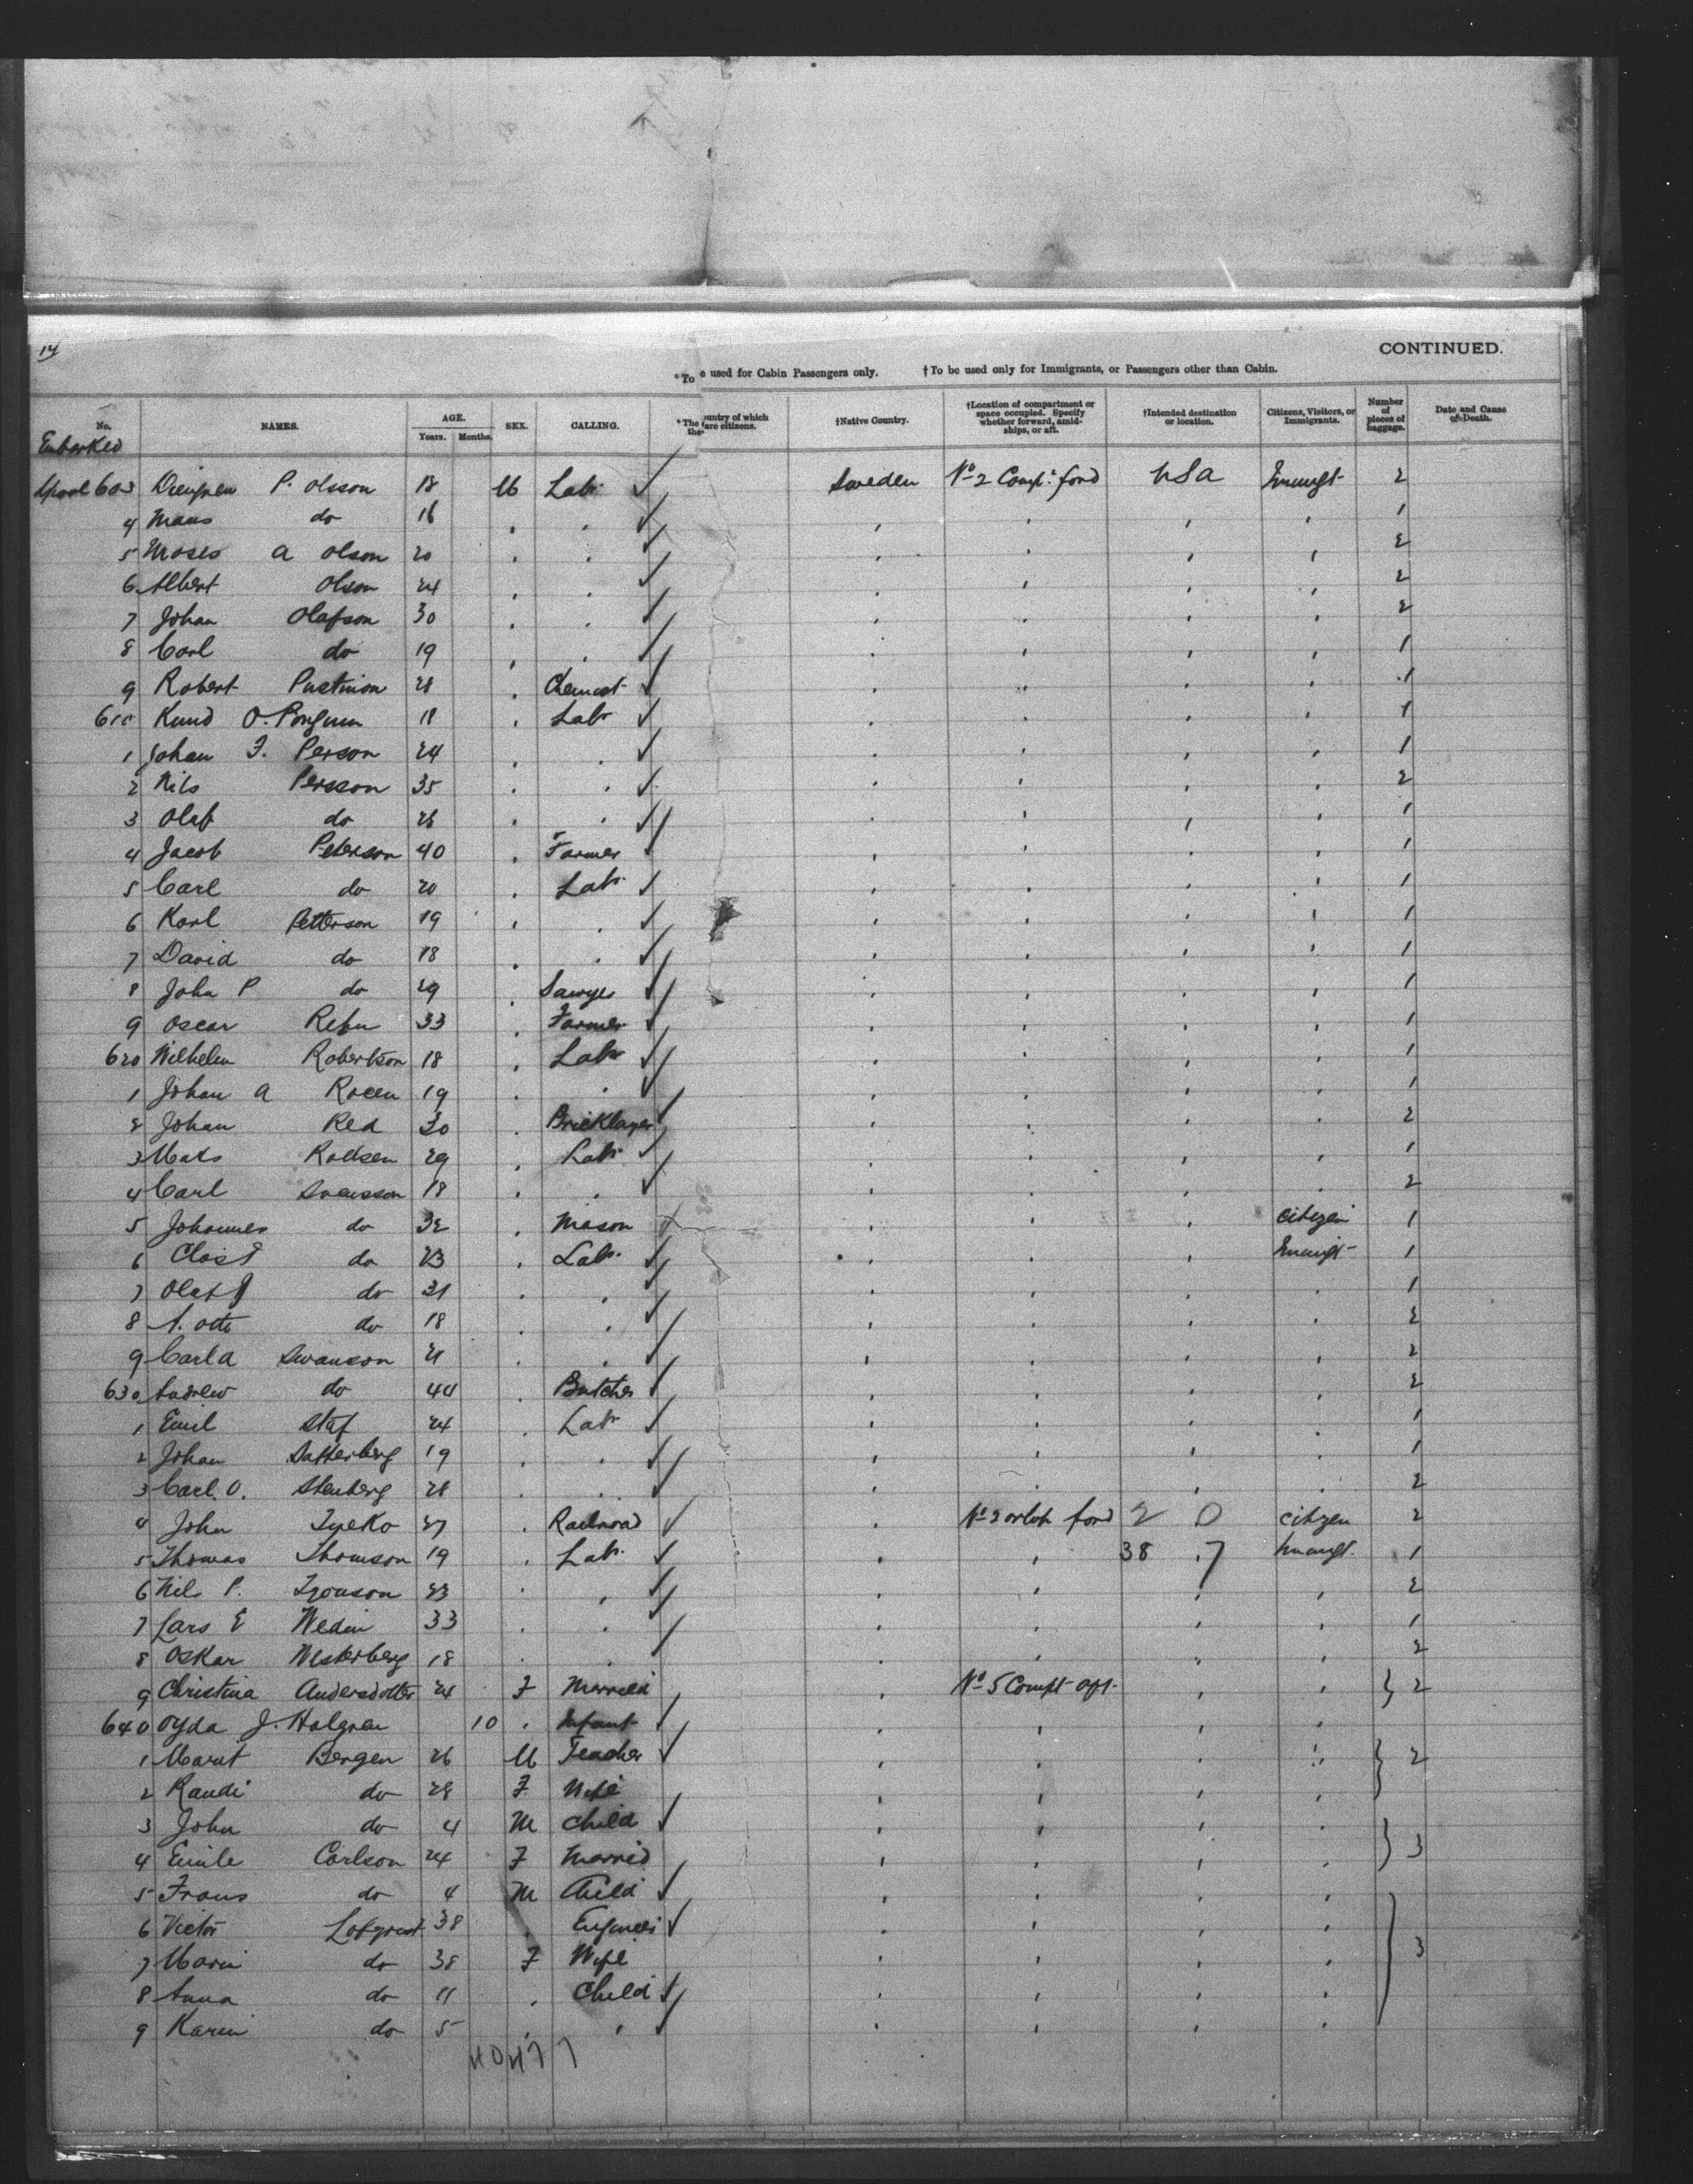 14
CONTINUED.
*To e used for Cabin Passengers only. †To be used only for Immigrants, or Passengers other than Cabin.
No. NAMES. AGE. Years. Months. SEX. CALLING. *The the untry of which are citizens. †Native Country. †Location of compartment or space occupied. Specify whether forward, amidships, or aft. †Intended destination or location. Citizens, Visitors, or Immigrants. Number of pieces of baggage. Date and Cause of Death.
Embarked
603 P. Olsson 18 M Labr Sweden No 2 Compt ford USA Immigt 2
4 Mans do 16 1
5 Moses A Olson 20 2
6 Albert Olson 24 2
7 Johan Olafson 30 2
8 Carl do 19 1
9 Robert 28 Chemist 1
610 O. 18 Labr 1
1 Johan F. Person 24 1
2 Nils Persson 35 2
3 Olaf do 1
4 Jacob Peterson 40 Farmer 1
5 Carl do 20 Labr 1
6 Karl Petterson 19 1
7 David do 18 1
8 John P do 29 Sawyer 1
9 Oscar 33 Farmer 1
620 Wilhelm Robertson 18 Labr 1
1 Johan A 19 1
2 Johan Red 30 Bricklayer 2
3 Mats 29 Labr 1
4 Carl Svensson 18 2
5 Johannes do 32 Mason citizen 1
6 do 23 Labr Immigt 1
7 Olaf do 31 1
8 A. Otto do 18 2
9 Carl A Swanson 21 2
630 Andrew do 44 Butcher 2
1 Emil Staf 24 Labr 1
2 Johan 19 1
3 Carl O. Stenberg 28 2
4 John 27 Railroad No 2 orlop ford 2 0 citizen 2
5 Thomas Thomson 19 Labr 38 7 Immigt 1
6 Nil P. 23 2
7 Lars E Wedin 33 1
8 Oskar Westerberg 18 2
9 Christina Andersdotter 24 F Married No 5 Compt aft 2
640 Oyda J. Holgren 10 Infant
1 Marit Bergen 26 M Teacher 2
2 Randi do 28 F Wife
3 John do 4 M Child
4 Emile Carlson 24 F Married 3
5 Frans do 4 M Child
6 Victor 38 Engineer
7 Marie do 38 F Wife 3
8 Anna do 11 Child
9 Karin do 5